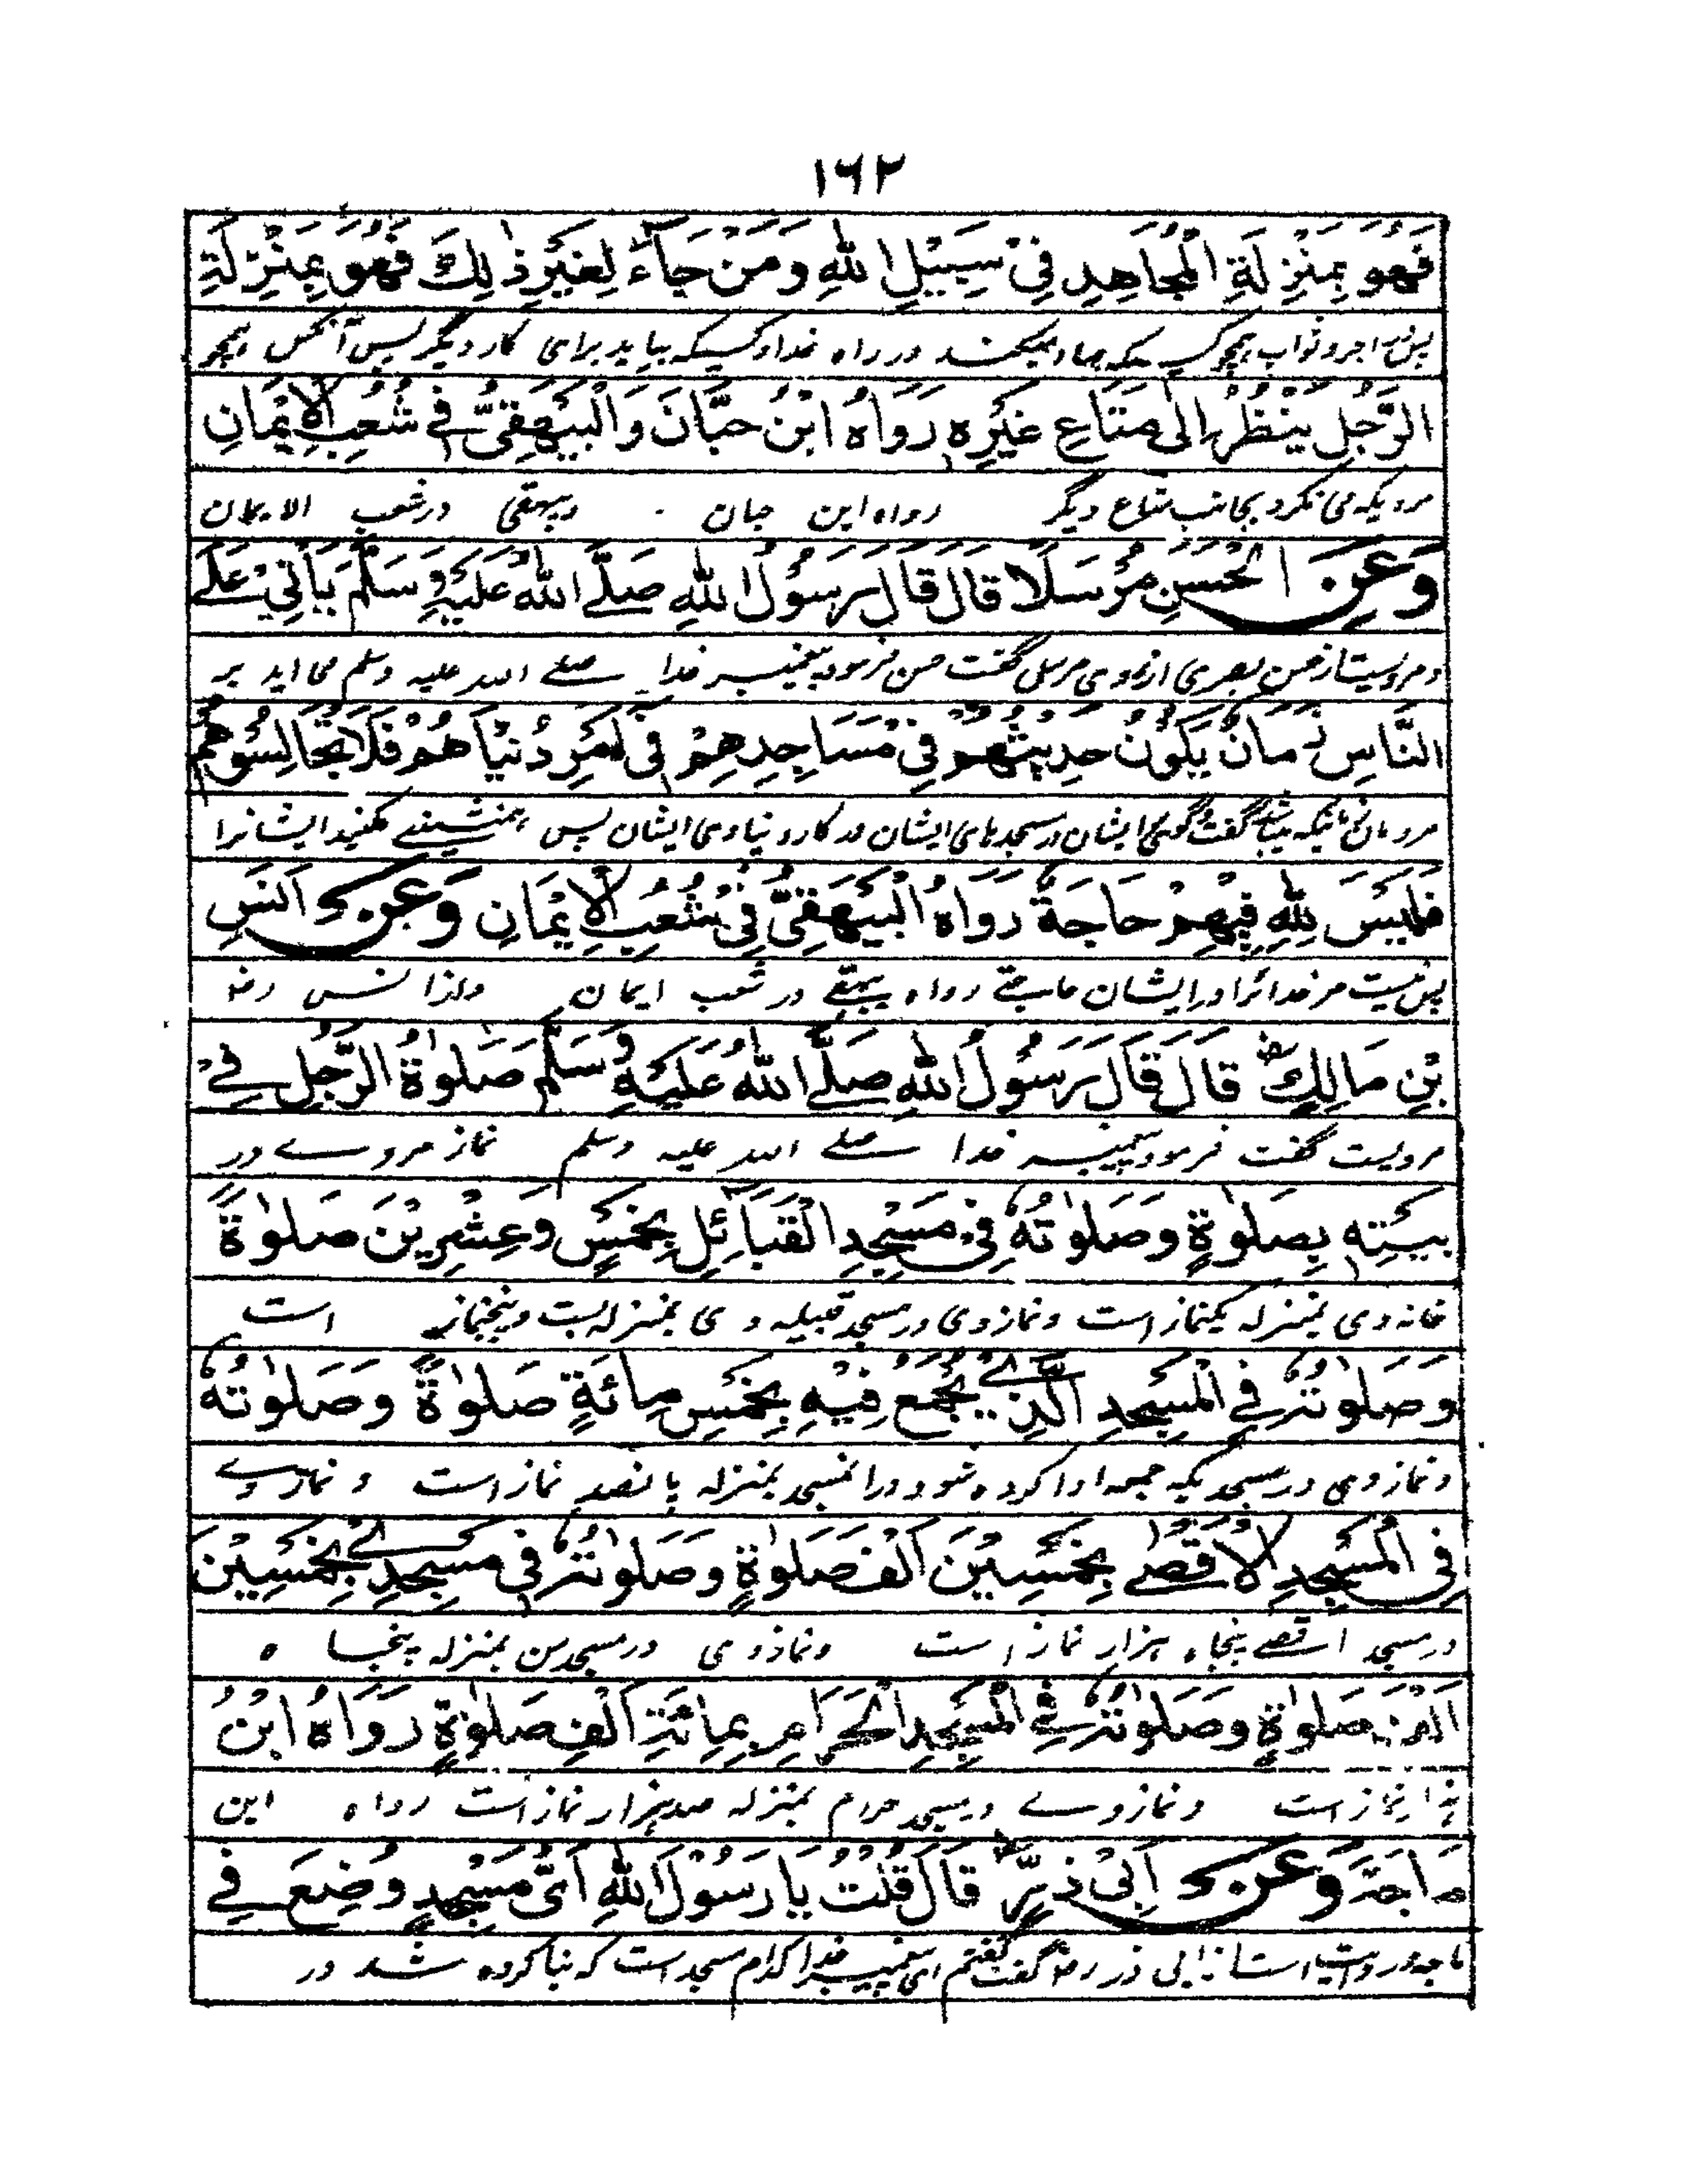 ١٦٢
فَهُوَ بِمَنْزِلَةِ الْمُجَاهِدِ فِيْ سَبِيْلِ اللهِ وَمَنْ جَآءَ لِغَيْرِ ذٰلِكَ فَهُوَ بِمَنْزِلَةِ
اجر و ثواب همچو در راه خدا و کسیکه بیاید برای کار دیگر پس آنکس همچو
الرَّجُلِ يَنْظُرُ اِلٰى مَتَاعِ غَيْرِهٖ رَوَاهُ ابْنُ حِبَّانَ وَالْبَيْهَقِيُّ فِيْ شُعَبِ الْاِيْمَانِ
مردیکه می نگرد بجانب متاع دیگر رواه ابن حبان و بیهقی در شعب الایمان
وَعَنِ الْحَسَنِ مُرْسَلًا قَالَ قَالَ رَسُوْلُ اللهِ صَلَّے اللهُ عَلَيْهِ وَسَلَّمَ يَأْتِيْ عَلَے
و مرویست از حسن بصری از روی مرسل گفت حسن فرمود پیغمبر خدا صلے الله علیه وسلم می اید بر
النَّاسِ زَمَانٌ يَكُوْنُ حَدِيْثُهُمْ فِيْ مَسَاجِدِهِمْ فِيْ اَمْرِ دُنْيَاهُمْ فَلَا تُجَالِسُوْهُمْ
مردمان زمانیکه میباشد گفت و گوی ایشان در مسجدهای ایشان در کار دنیاوی ایشان پس همنشینے مکنید ایشانرا
فَلَيْسَ لِلّٰهِ فِيْهِمْ حَاجَةٌ رَوَاهُ الْبَيْهَقِيُّ فِيْ شُعَبِ الْاِيْمَانِ وَعَنْ اَنَسِ
پس نیست مر خدائرا در ایشان حاجتے رواه بیهقے در شعب ایمان و از انس رض
بْنِ مَالِكٍ رض قَالَ قَالَ رَسُوْلُ اللهِ صَلَّے اللهُ عَلَيْهِ وَسَلَّمَ صَلٰوةُ الرَّجُلِ فِيْ
مرویست گفت فرمود پیغمبر خدا صلے الله علیه وسلم نماز مردے در
بَيْتِهٖ بِصَلٰوةٍ وَصَلٰوتُهٗ فِيْ مَسْجِدِ الْقَبَآئِلِ بِخَمْسٍ وَعِشْرِيْنَ صَلٰوةً
خانه وی بمنزله یکنماز است و نماز وی در مسجد قبیله وی بمنزله بست و پنجنماز است
وَصَلٰوتُهٗ فِي الْمَسْجِدِ الَّذِيْ يُجْمَعُ فِيْهِ بِخَمْسِ مِائَةِ صَلٰوةً وَصَلٰوتُهٗ
و نماز وی در مسجدیکه جمعه ادا کرده شود در انمسجد بمنزله پانصد نماز است و نماز وے
فِي الْمَسْجِدِ الْاَقْصٰے بِخَمْسِيْنَ اَلْفَ صَلٰوةٍ وَصَلٰوتُهٗ فِيْ مَسْجِدِيْ بِخَمْسِيْنَ
در مسجد اقصے پنجاه هزار نماز است و نماز وی در مسجد من بمنزله پنجا ه
اَلْفَ صَلٰوةٍ وَصَلٰوتُهٗ فِي الْمَسْجِدِ الْحَرَامِ بِمِائَةِ اَلْفِ صَلٰوةٍ رَوَاهُ ابْنُ
هزار نماز است و نماز وے در مسجد حرام بمنزله صد هزار نماز است رواه ابن
مَاجَةَ وَعَنْ اَبِيْ ذَرٍّ رض قَالَ قُلْتُ يَا رَسُوْلَ اللهِ اَيُّ مَسْجِدٍ وُضِعَ فِي
ماجه و روایت است از ابی ذر رض گفت گفتم ای پیغمبر خدا کدام مسجد است که بنا کرده شد در